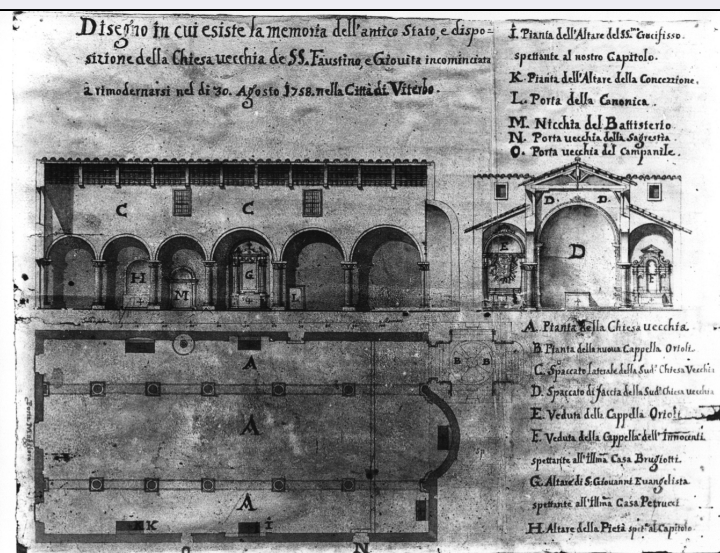 Disegno in cui esiste la memoria dell'antico Stato, e dispo=
sizione della Chiesa uecchia de SS. Faustino, e Giouita incominciata
à rimodernarsi nel dì 30. Agosto 1758. nella Città di Viterbo.
I. Pianta dell'Altare del SS.mo Crucifisso.
spettante al nostro Capitolo.
K. Pianta dell'Altare della Concezzione.
L. Porta della Canonica.
M. Nicchia del Battisterio
N. Porta uecchia della Sagrestia.
O. Porta vecchia del Campanile.
C C
H M G L
D. D.
E D F
A. Pianta della Chiesa uecchia.
B. Pianta della nuoua Cappella Ortoli.
C. Spaccato laterale della Sud.a Chiesa Vecchia
D. Spaccato di faccia della Sud.a Chiesa uecchia
E. Veduta della Cappella Ortoli
F. Veduta della Cappella dell'Innocenti
spettante all'Illma Casa Brugiotti.
G. Altare di S. Giouanni Euangelista
spettante all'Illma Casa Petrucci
H. Altare della Pietà spet.e al Capitolo
A
B B
A
A
K I
N